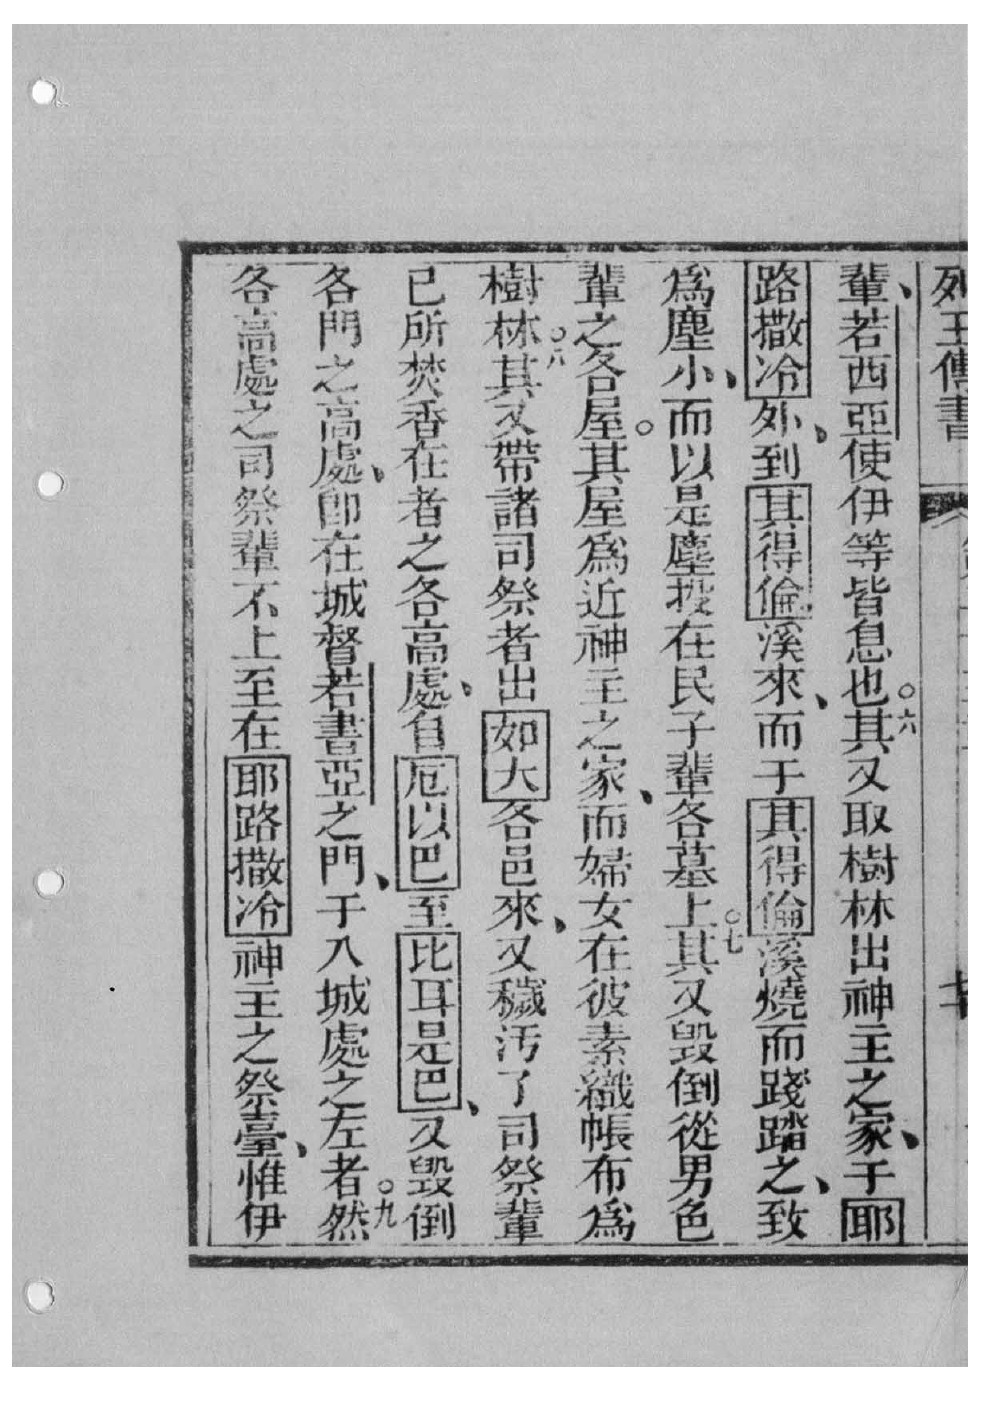 列王傳書
輩、若西亞使伊等皆息也。六其又取樹林出神主之家、于耶
路撒冷外、到其得倫溪來、而于其得倫溪燒而踐踏之、致
爲塵小、而以是塵投在民子輩各墓上。七其又毀倒從男色
輩之各屋。其屋爲近神主之家、而婦女在彼素織帳布爲
樹林。八其又帶諸司祭者出如大各邑來、又穢汚了司祭輩
已所焚香在者之各高處、自厄以巴至比耳是巴、又毀倒
各門之高處、卽在城督若書亞之門、于入城處之左者。九然
各高處之司祭輩不上至在耶路撒冷神主之祭臺、惟伊